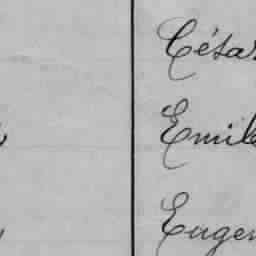 César
Emile
Eugen